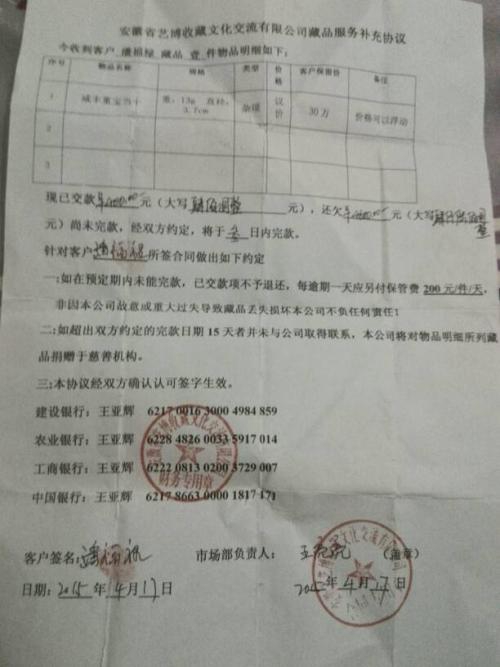 安徽省艺博收藏文化交流有限公司藏品服务补充协议
今收到客户 潘祖绿 藏品 壹 件物品明细如下:
序号 物品名称 规格 类型 价格 客户保留价 备注
1 咸丰重宝当十 重:13g 直径:3.7cm 杂项 议价 30万 价格可以浮动
2
3
现已交款 元(大写 元),还欠 元(大写
元)尚未完款,经双方约定,将于 日内完款。
针对客户 所签合同做出如下约定
一:如在预定期内未能完款,已交款项不予退还,每逾期一天应另付保管费 200 元/件/天,
非因本公司故意或重大过失导致藏品丢失损坏本公司不负任何责任!
二:如超出双方约定的完款日期 15 天者并未与公司取得联系,本公司将对物品明细所列藏
品捐赠于慈善机构。
三:本协议经双方确认认可签字生效。
建设银行:王亚辉 6217 0016 3000 4984 859
农业银行:王亚辉 6228 4826 0033 5917 014
工商银行:王亚辉 6222 0813 0200 3729 007
中国银行:王亚辉 6217 8663 0000 1817 171
财务专用章
客户签名: 市场部负责人: (盖章)
日期:2015 年 4 月 17 日 2015 年 4 月 17 日